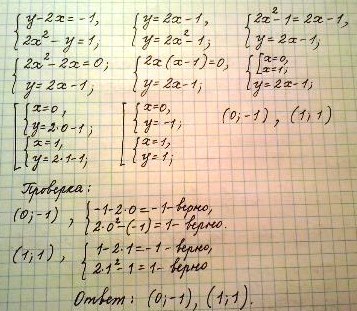 {y-2x=-1, {y=2x-1, {2x²-1=2x-1,
{2x²-y=1; {y=2x²-1; {y=2x-1;
{2x²-2x=0; {2x(x-1)=0, {[x=0, x=1;
{y=2x-1; {y=2x-1; {y=2x-1;
[{x=0, [{x=0, (0;-1), (1;1)
{y=2·0-1; {y=-1;
{x=1, {x=1,
{y=2·1-1; {y=1;
Проверка:
(0;-1), {-1-2·0=-1- верно,
{2·0²-(-1)=1- верно.
(1;1), {1-2·1=-1- верно,
{2·1²-1=1- верно
Ответ: (0;-1), (1;1).